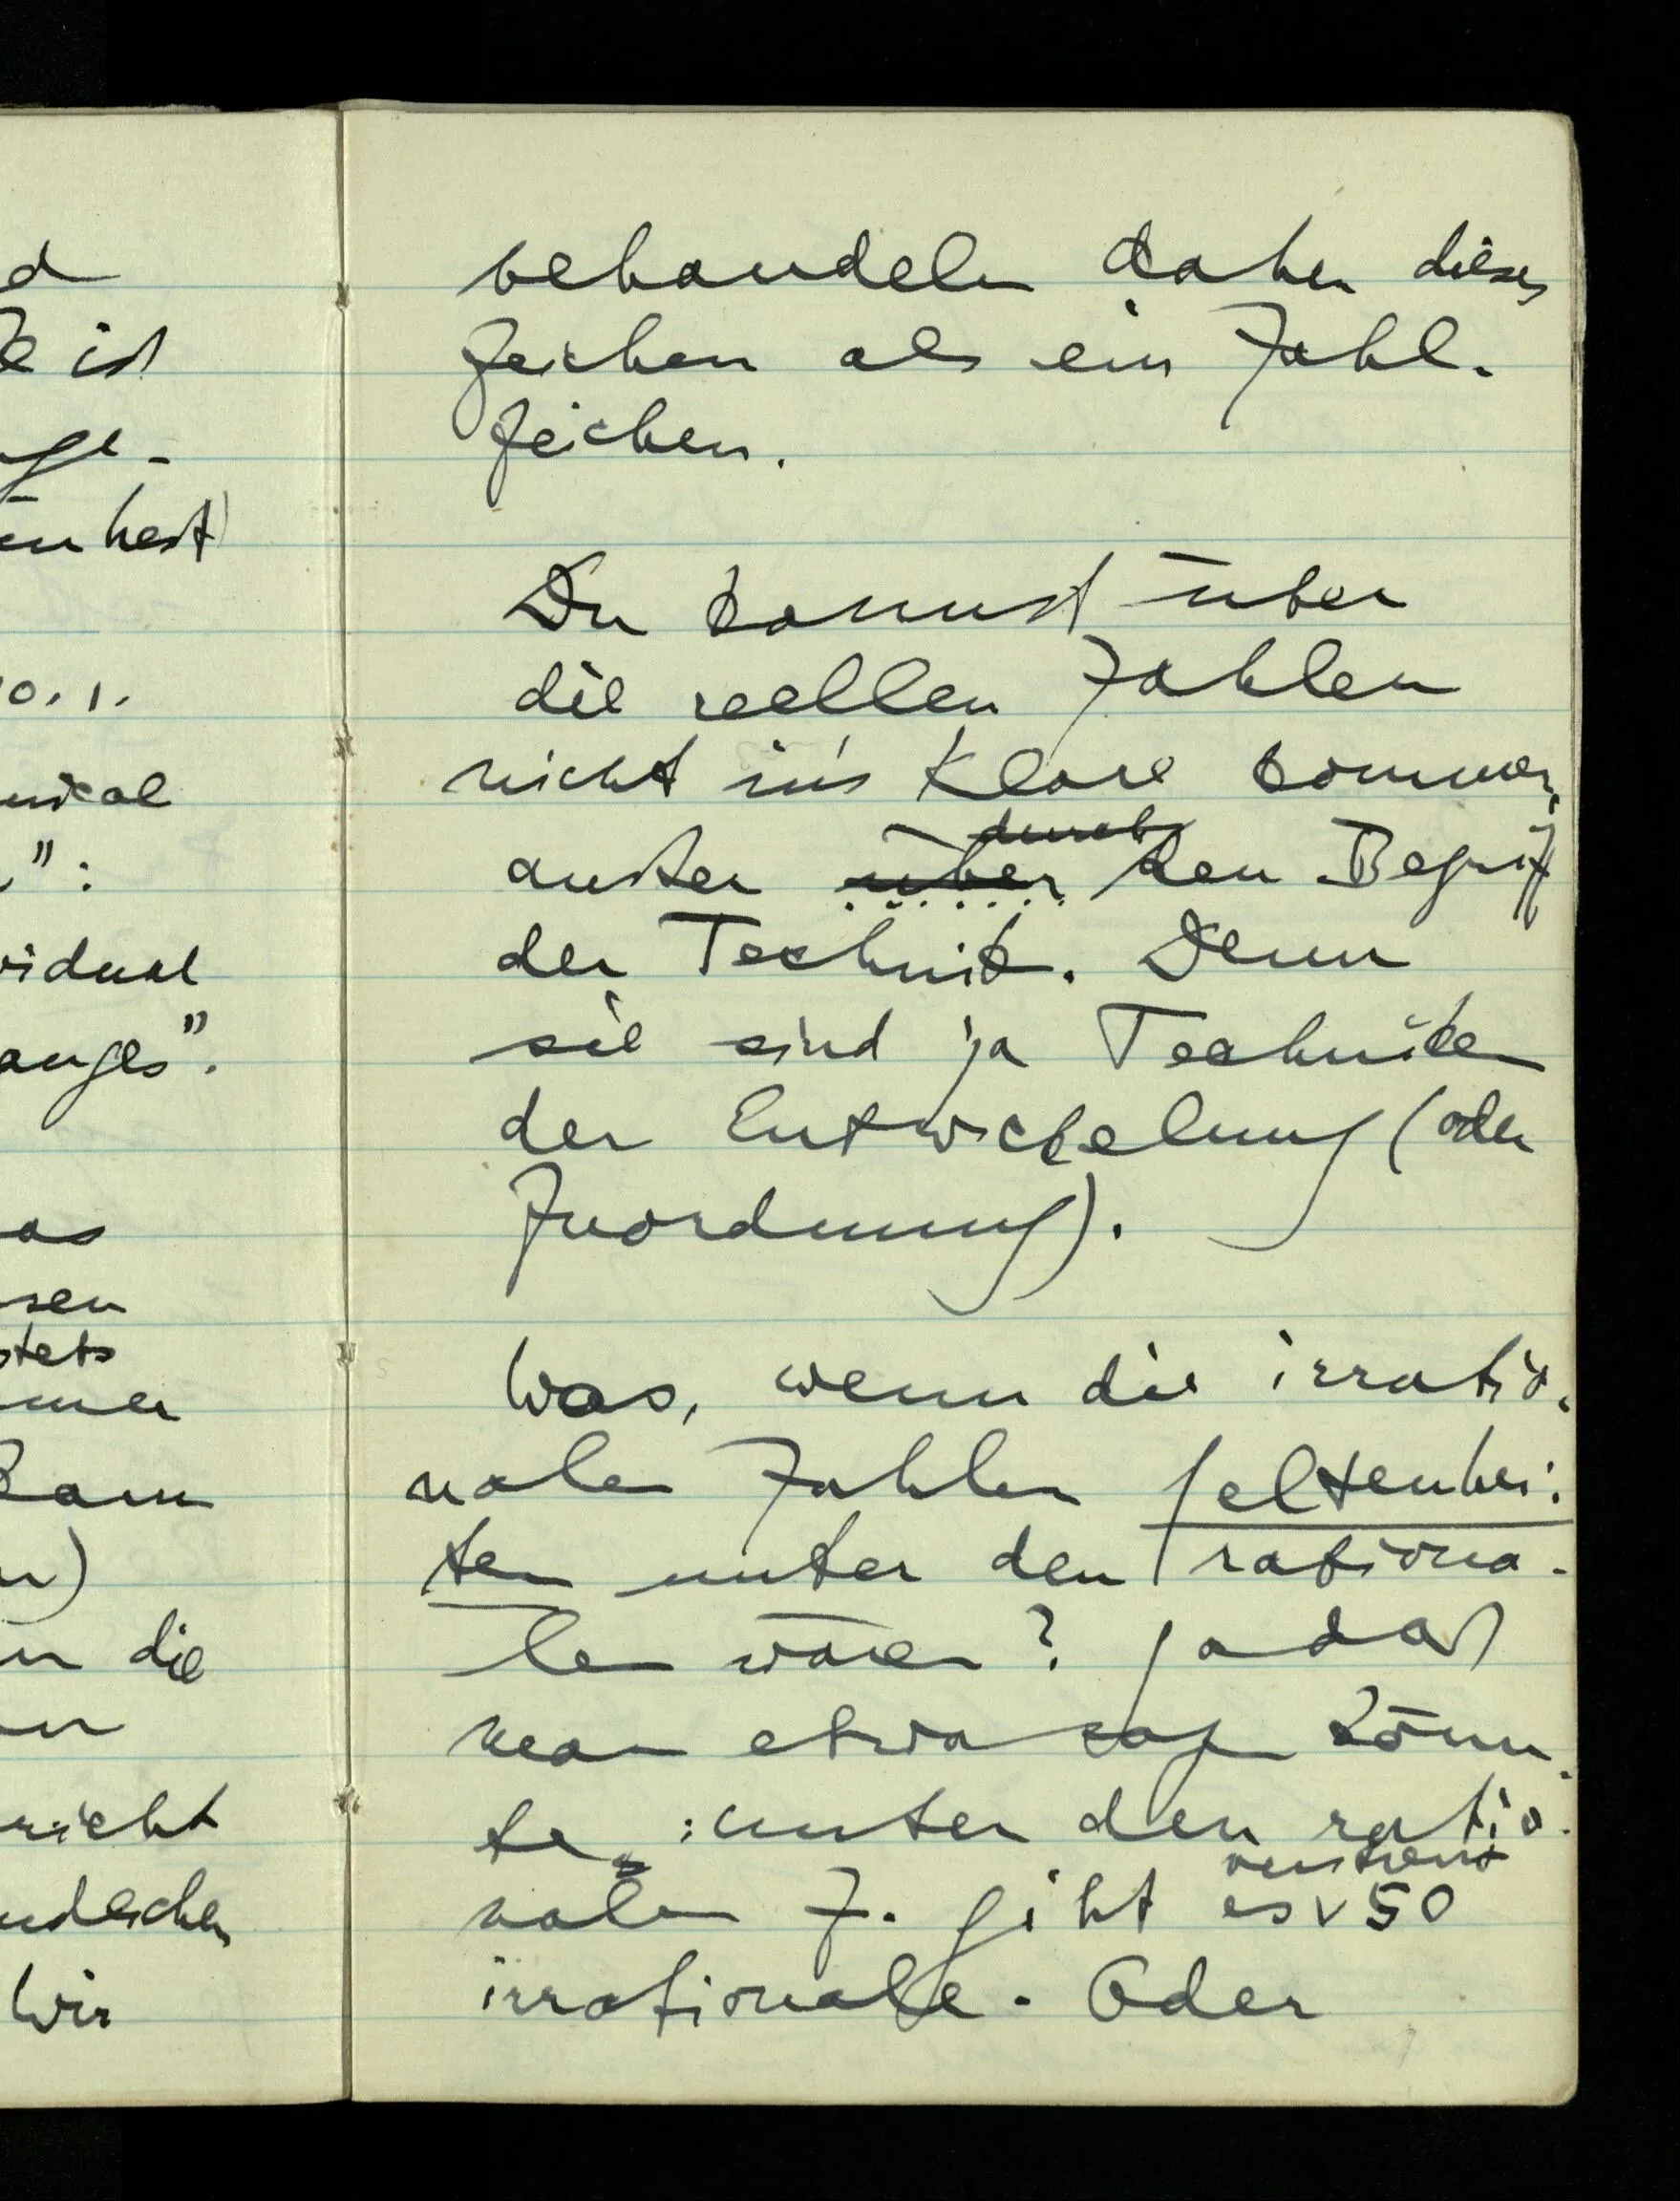 d
ist
ge-
0.1.
":
vidual
anges".
as
sen
stets
mer
kann
n)
n die
n
nicht
ndlichen
Wir
behandeln daher dieses
Zeichen als ein Zahl-
zeichen.
Du kannst über
die reellen Zahlen
nicht in's Klare kommen,
durch
außer über den Begriff
der Technik. Denn
sie sind ja Techniken
der Entwickelung (oder
Zuordnung).
Was, wenn die irratio-
nalen Zahlen Seltenhei-
ten unter den rationa-
len wären? Sodaß
man etwa sagen könn-
te: unter den ratio-
nalen Z. gibt es 50
irrationale. Oder